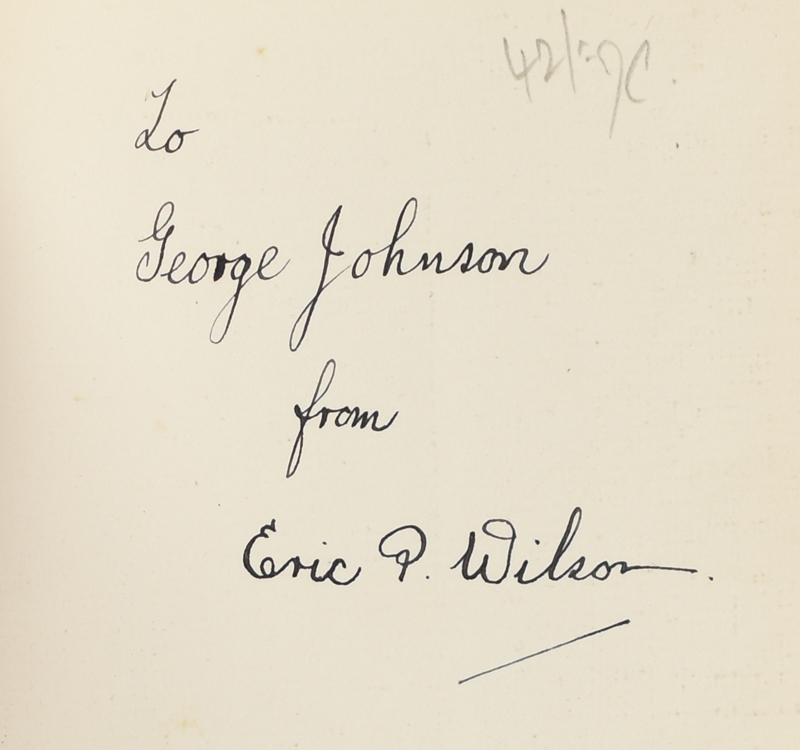 To
George Johnson
from
Eric P. Wilson.